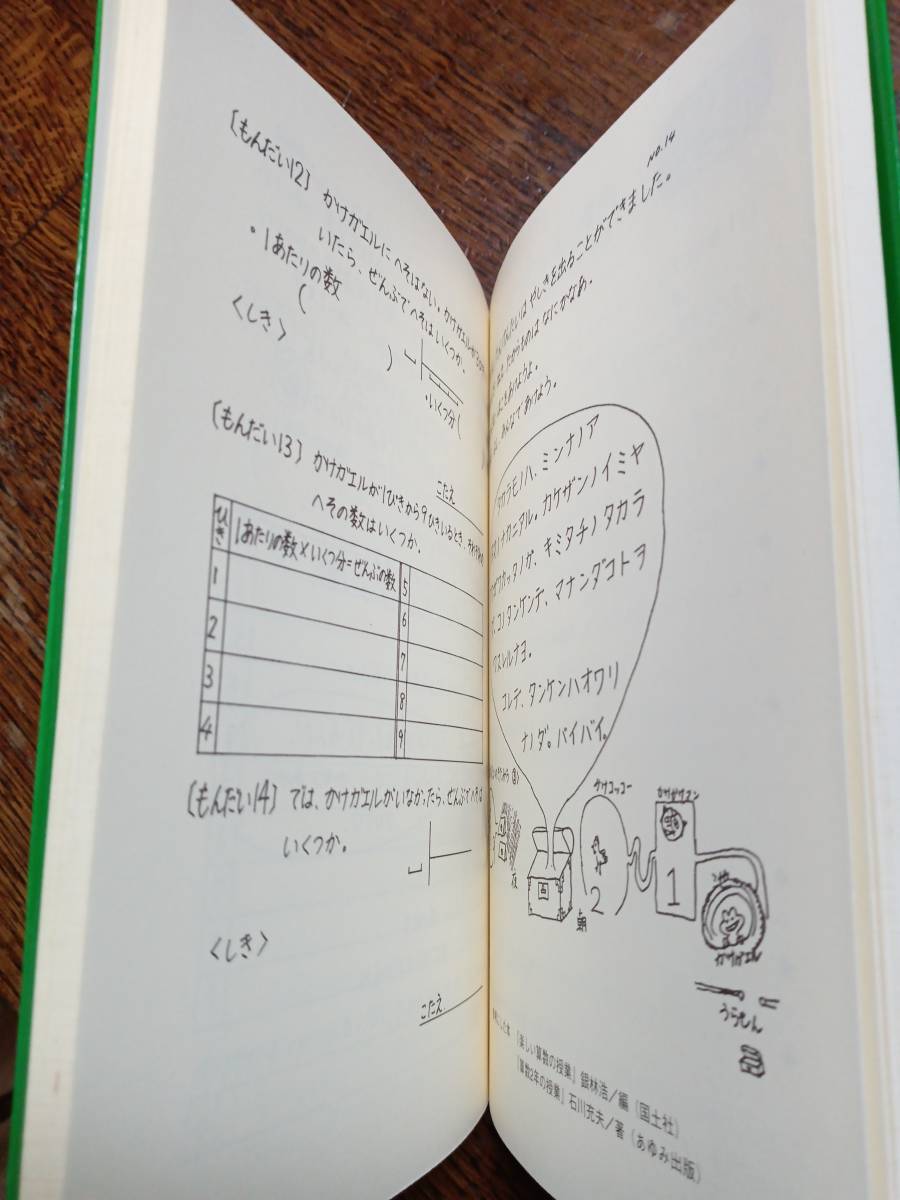 〔もんだい12〕 かけガエルに へそはない。かけガエルが
いたら、ぜんぶで へそは いくつか。
・1あたりの数
(    )
・いくつ分(
〈しき〉
こたえ
〔もんだい13〕 かけガエルが1ぴきから9ひきいるとき、
へその数はいくつか。
ひき 1あたりの数×いくつ分=ぜんぶの数
1 5
2 6
3 7
4 8
9
〔もんだい14〕 では、かけガエルがいなかったら、ぜんぶで へそは
いくつか。
〈しき〉
こたえ
NO.14
たんけんたいは やしきを出ることができました。
たからものは なにかなあ。
あけようよ。
みんなであけよう。
タカラモノハ、ミンナノア
タマノナカニアル。カケザンノイミヤ
ワカッタノガ、キミタチノタカラ
コノタンケンデ、マナンダコトヲ
ワスレルナヨ。
コレデ、タンケンハオワリ
ナノダ。バイバイ。
カケコッコー
2
1
かけガエル
うらもん
にした本 『楽しい算数の授業』銀林浩/編(国土社)
『算数2年の授業』石川充夫/著(あゆみ出版)